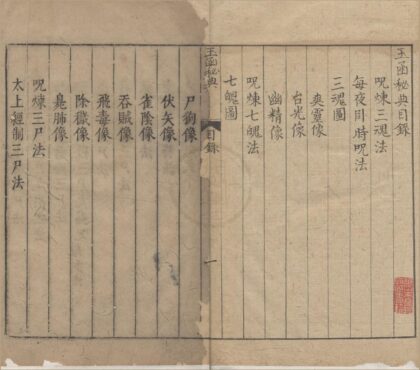 玉函秘典目錄
呪煉三魂法
每夜臥時呪法
三魂圖
爽靈像
台光像
幽精像
呪煉七魄法
七魄圖
玉函秘典
目錄
一
尸狗像
伏矢像
雀陰像
吞賊像
飛毒像
除穢像
臭肺像
呪煉三尸法
太上經制三尸法